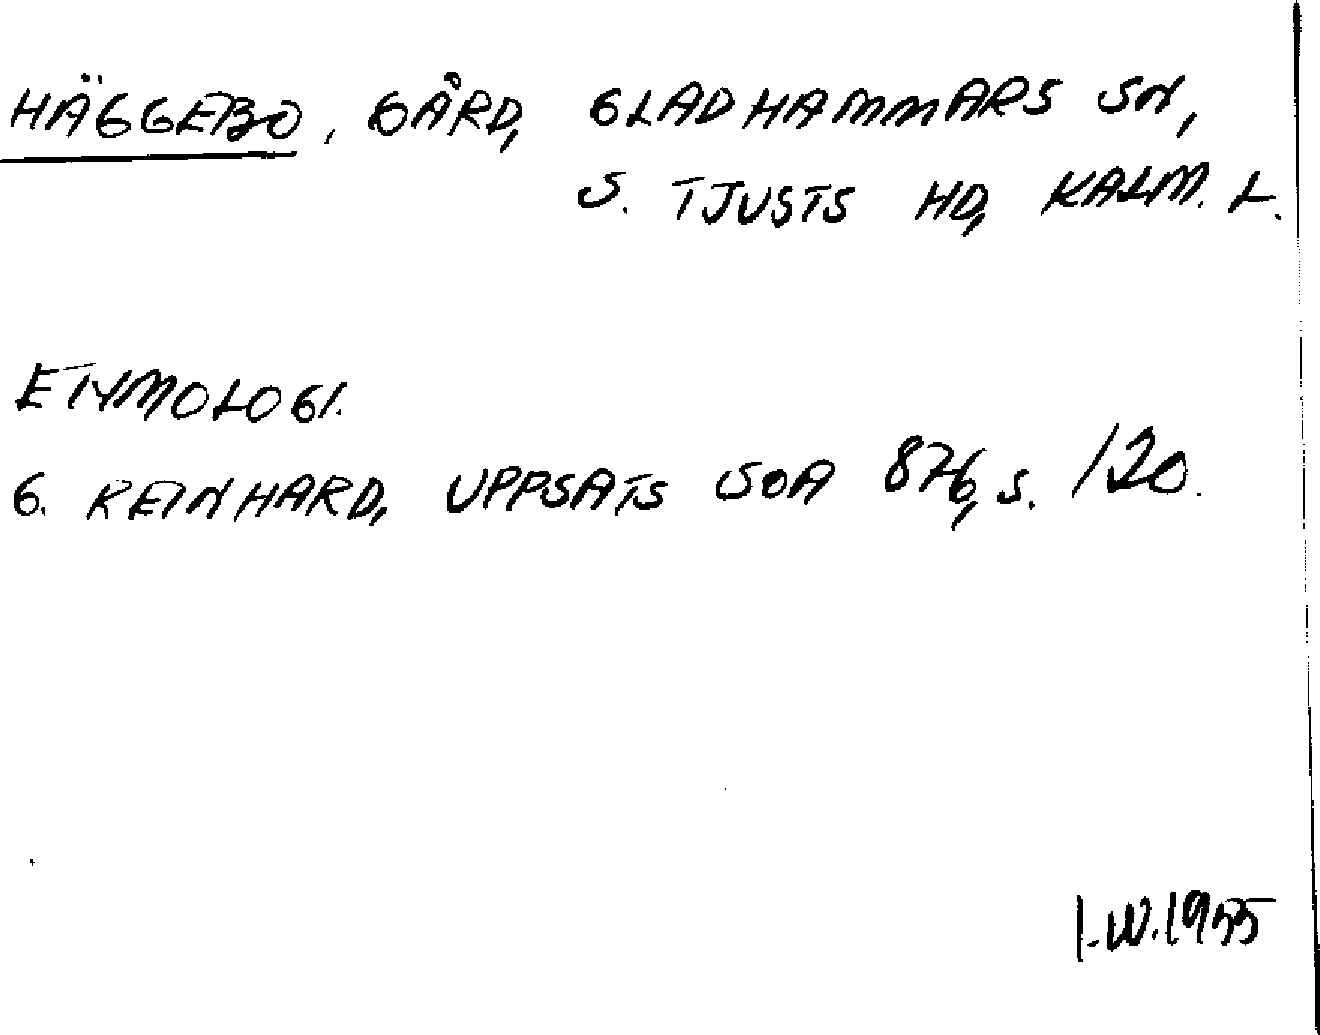 HÄGGEBO, GÅRD, GLADHAMMARS SN,
S. TJUSTS HD, KALM. L.
ETYMOLOGI.
G. REINHARD, UPPSATS SOA 876, S. 120.
I.W.1955